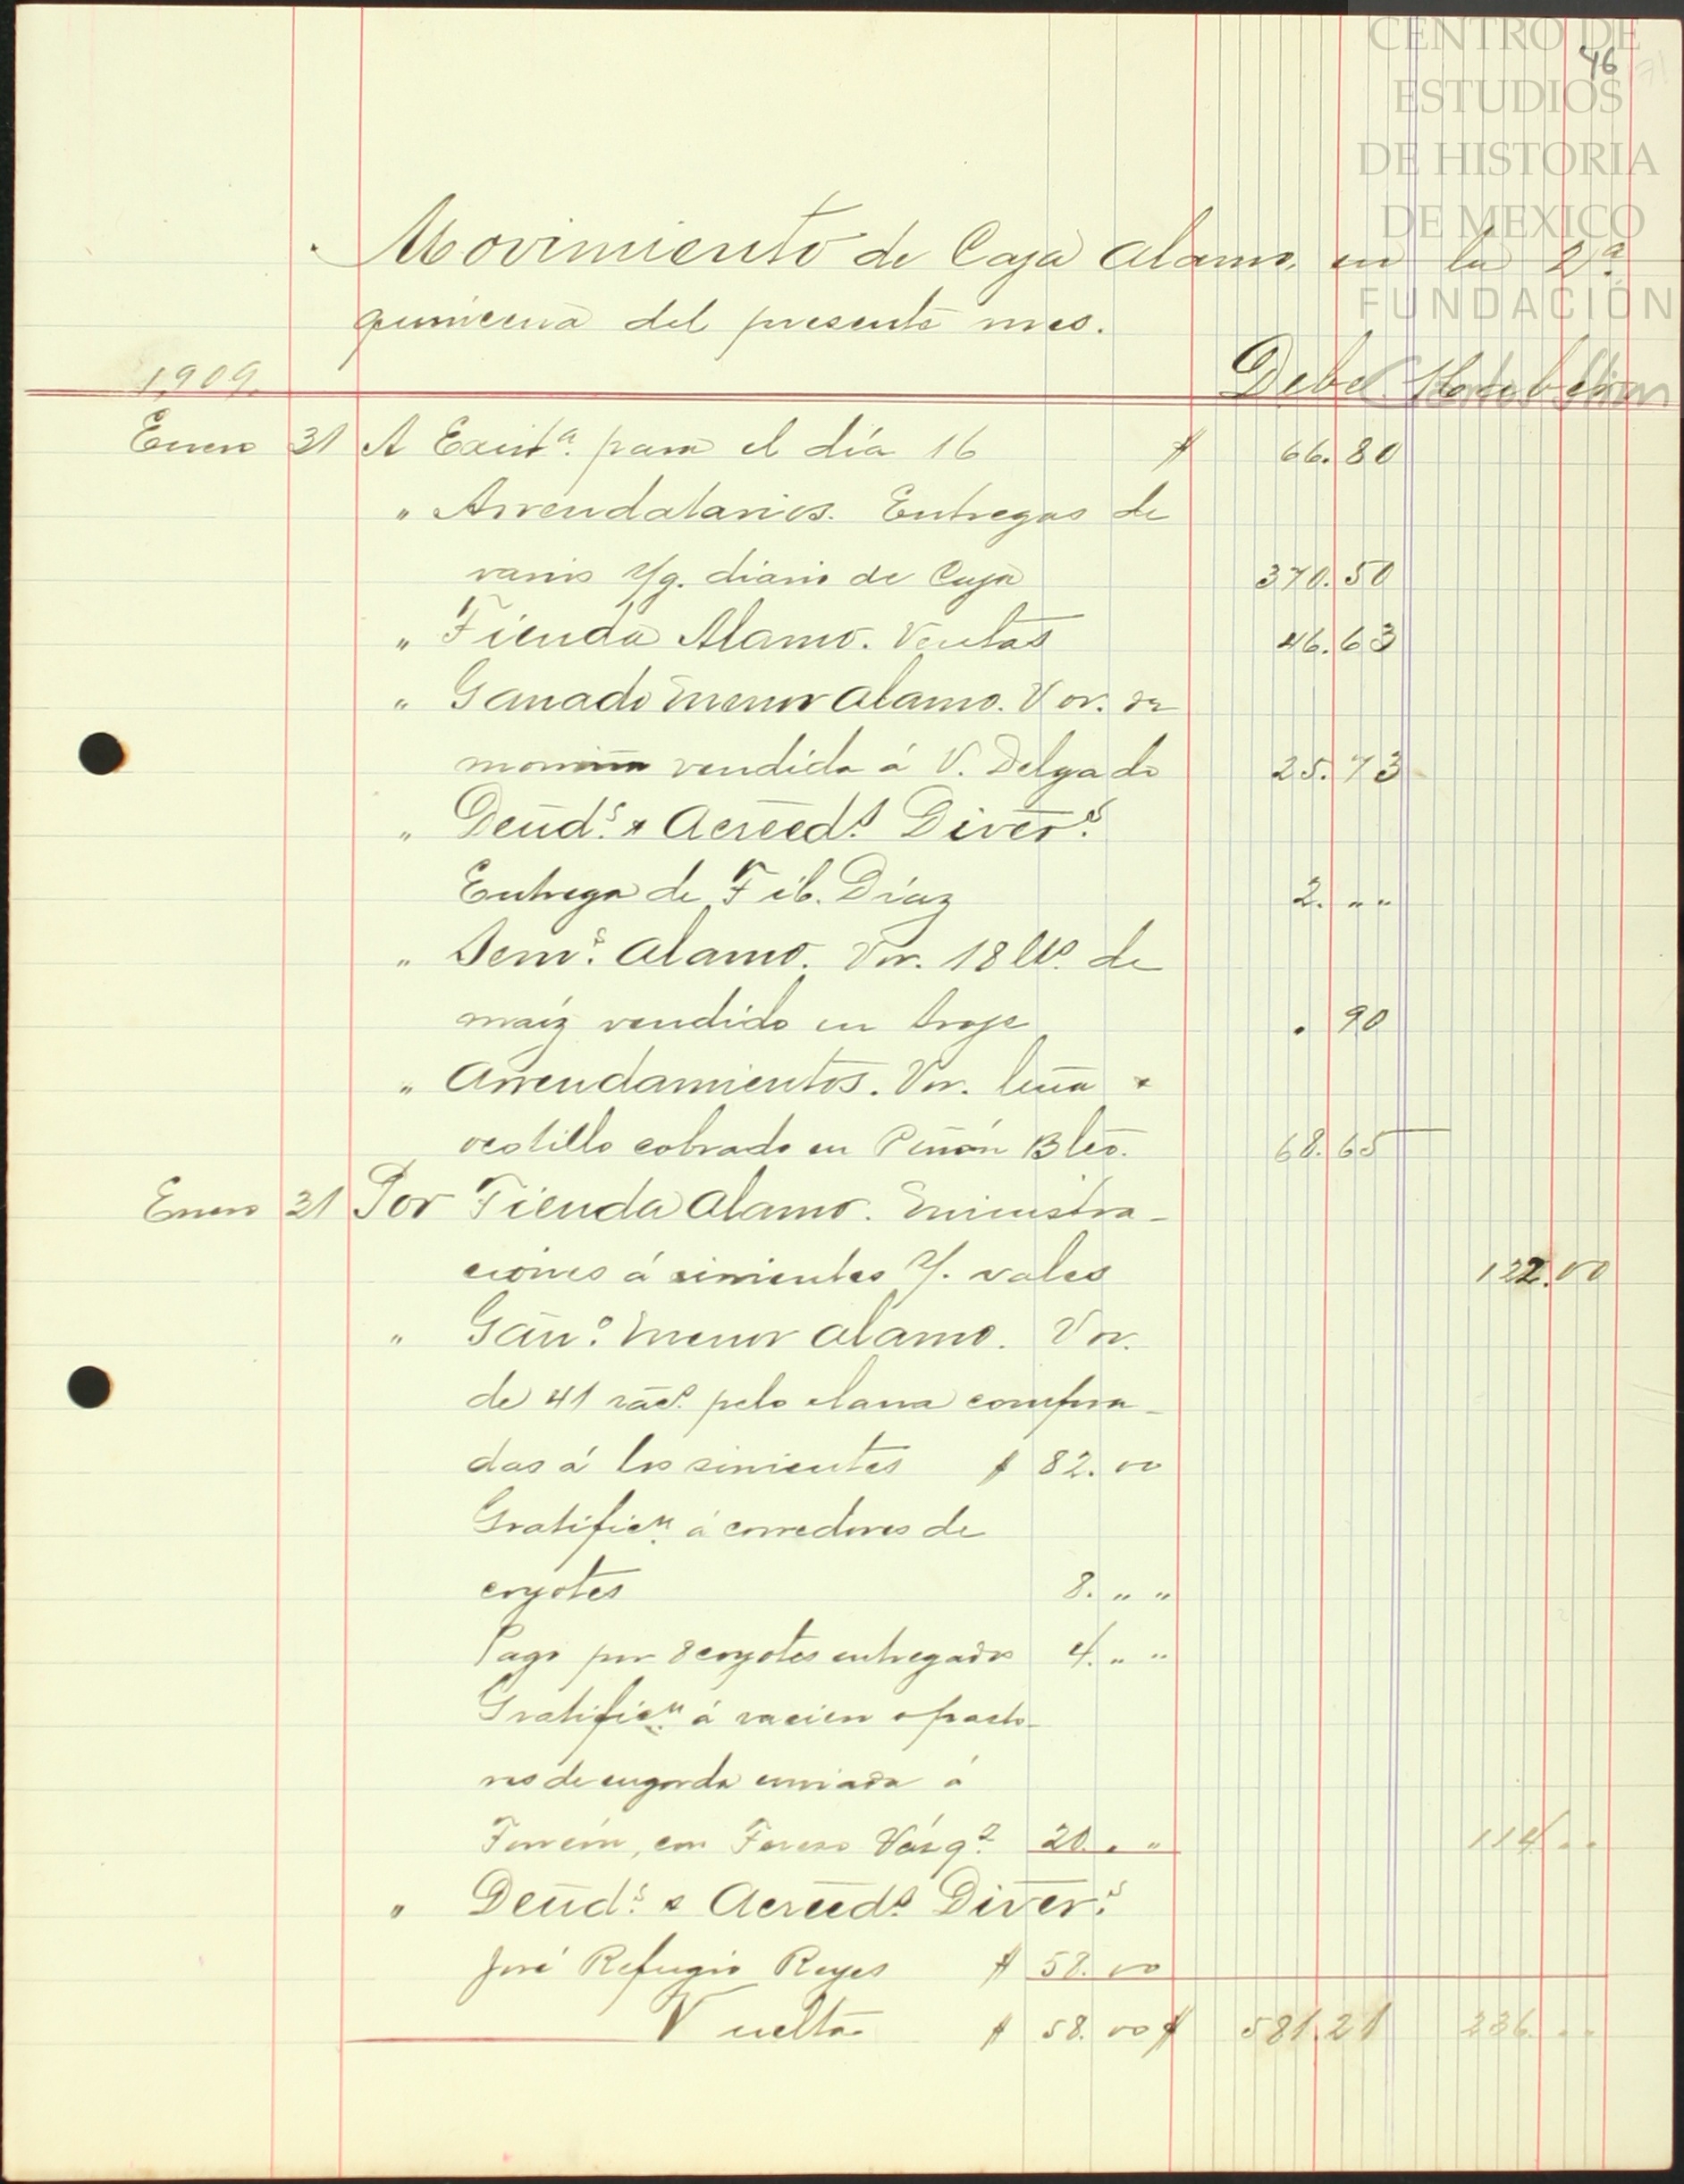 CENTRO DE
46
ESTUDIOS
DE HISTORIA
DE MEXICO
FUNDACIÓN
Movimiento de Caja Alamo, en la 2ª
quincena del presente mes.
1909. Debe Haber
Enero 31 A Existª. para el día 16 $ 66.80
" Arrendatarios. Entregas de
varios s/g. diario de Caja 370.50
" Tienda Alamo. Ventas 46.63
" Ganado menor Alamo. Vor. de
vendida á V. Delgado 25.73
" Deud.s & Acreed.s Divers.s
Entrega de Fib. Díaz 2. " "
" Sem.s Alamo. Vor. 18 lts. de
maíz vendido en troje . 90
" Arrendamientos. Vor. leña &
ocotillo cobrado en Piñón Blco. 68.65
Enero 31 Por Tienda Alamo. Ministra-
ciones á sirvientes s/. vales 122.00
" Gan.o menor Alamo. Vor.
de 41 zac.s pelo y lana compra-
das á los sirvientes $ 82.00
Gratific.n á corredores de
coyotes 8. " "
Pago por 8 coyotes entregados 4. " "
Gratific.n á y pasto-
res de engorda enviada á
Torreón, con Vázq.z 20. " " 114 " "
" Deud.s & Acreed.s Divers.s
José Refugio Reyes $ 58.00
Vuelta $ 58.00 $ 581.21 236. " "